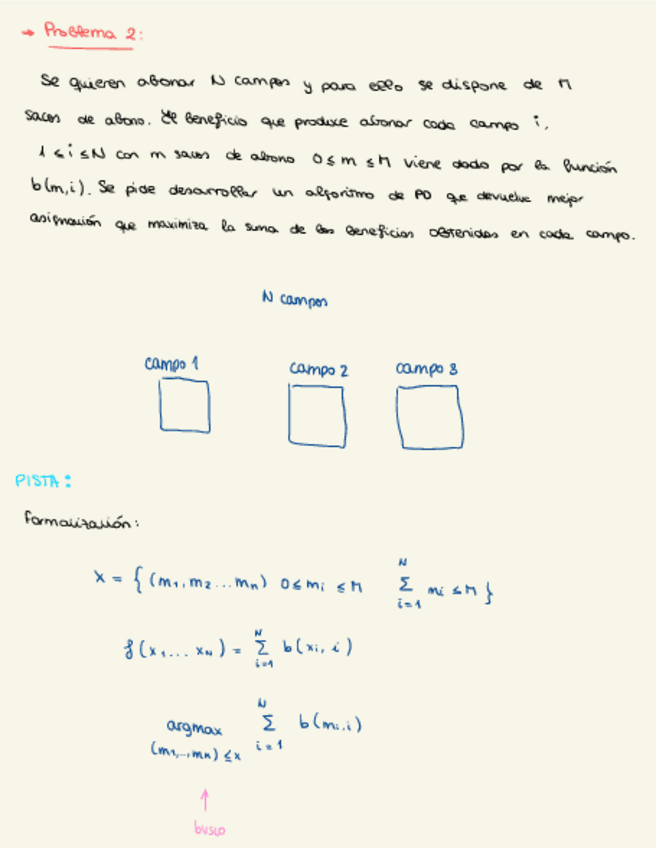 → Problema 2:
Se quieren abonar N campos y para ello se dispone de M
sacos de abono. El beneficio que produce abonar cada campo i,
1 ≤ i ≤ N con m sacos de abono 0 ≤ m ≤ M viene dado por la función
b(m,i). Se pide desarrollar un algoritmo de PD que devuelve mejor
asignación que maximiza la suma de los beneficios obtenidos en cada campo.
N campos
campo 1 campo 2 campo 3
PISTA:
Formalización:
X = { (m₁, m₂ ... mₙ) 0 ≤ mi ≤ M ∑ᵢ₌₁ᴺ mi ≤ M }
f(x₁ ... x_N) = ∑ᵢ₌₁ᴺ b(xi, i)
argmax ∑ᵢ₌₁ᴺ b(mi,i)
(m₁,..,mₙ) ≤ x
↑
busco